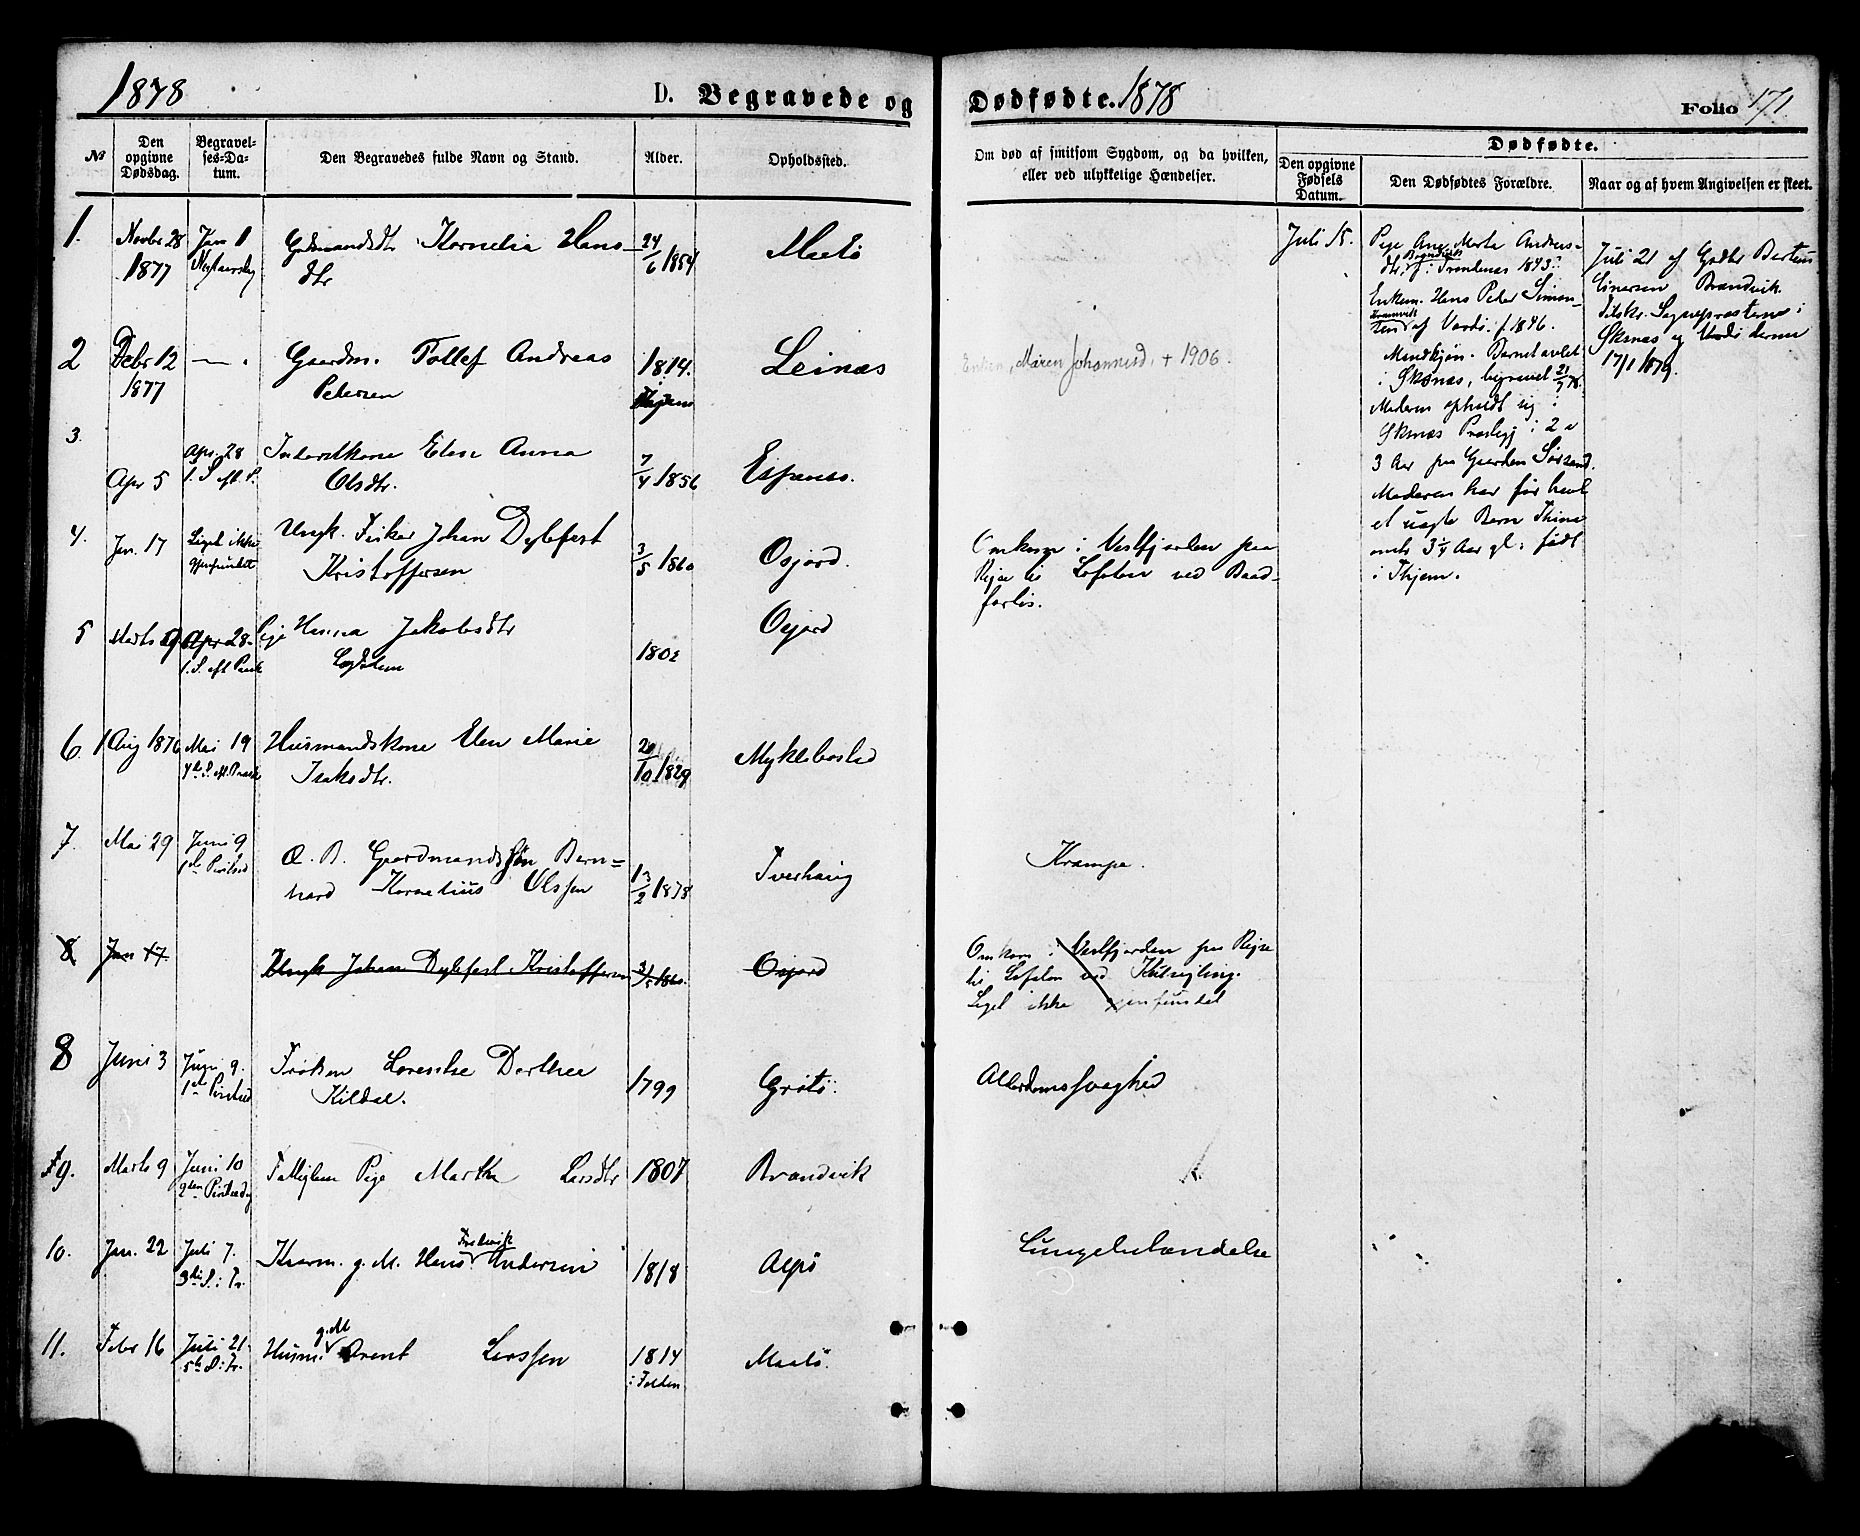 1878
D. Begravede og
№
Den opgivne Dødsdag.
Begravelses-Datum.
Den Begravedes fulde Navn og Stand.
Alder.
Opholdssted.
1. Novbr 28 1877 Jan 1 Nytaarsdag Hans-
Kornelia
dtr 24/6 1854 Maelø
2 Febr 12 1877 — . Gaardm. Tollef Andreas
Petersen 1814. Leinæs
3 Apr 5 Apr. 28 1. S. eft. P. Inderstkone Elen Anna
Olsdtr. 7/4 1856 Espenes.
4. Jan. 17 Liget ikke gjenfundet Ungk. Fisker Johan Dylefest
Kristoffersen 3/5 1860 Osjord.
5 Marts Apr 28 1. S. eft. Paask Pige Hanna Jakobsdtr
Lægdslem 1802 Osjord
6 1 Aug 1876 Mai 19 4de S. eft. Paaske Husmandskone Elen Marie
Isaksdtr. 29/10 1829 Myklebostad
7. Mai 29 Juni 9 1ste Pintsed Æ. B. Gaardmandssøn Bern=
hard Kornelius Olssen 13/2 1878 Tverhaug
8 Jan 17. Ungk Johan Dylefest Kristoffersen 3/5 1860. Osjord
8 Juni 3 Juni 9. 1ste Pintsed Frøken Lorentse Dorthea
Kildal. 1799 Grøtø
9. Marts 9 Juni 10 2den Pintsedg Fattiglem Pige Martha Larsdtr 1807 Brandvik
10. Jan. 22 Juli 7. 3die S. i Tr. Kaarm. g. M. Hans Fredrik Andersen 1818 Alpø
11. Febr 16 Juli 21 5te S. i Tr. Husm. g. M Arent Larssen 1814 i Folden Maalø.
Dødfødte. 1878
Folio 171.
Om død af smitsom Sygdom, og da hvilken,
eller ved ulykkelige Hændelser.
Dødfødte.
Den opgivne Fødsels Datum.
Den Dødfødtes Forældre.
Naar og af hvem Angivelsen er skeet.
Enken, Maren Johannesd. + 1906.
Omkom i Vestfjorden paa
Rejse til Lofoten ved Baad-
forlis.
Krampe.
Omkom i Vestfjorden paa Rejse
til Lofoten ved Kulsejling.
Liget ikke gjenfundet
Alderdomssvaghed
Lungebetændelse
Juli 15.
Pige Ane Marta Andreas-
dtr, Brandvik f. i Trondenæs 1843.
Enkem. Hans Peder Simon-
sen af Vardø. f. 1846.
Mandkjøn. Barnet avlet
i Skjsnæs, begravet 21/7 78.
Moderen opholdt sig i
Præstegj i 2 a
3 Aar paa Gaarden
Moderen har før havt
et uægte Barn Thina
3 1/4 Aar gl. født
i Thjøm.
Juli 21 af Gaardbr Berteus
Einersen Brandvik.
Tilskr. Sognepræsterne i
og Vardø derom
17/1 1879.